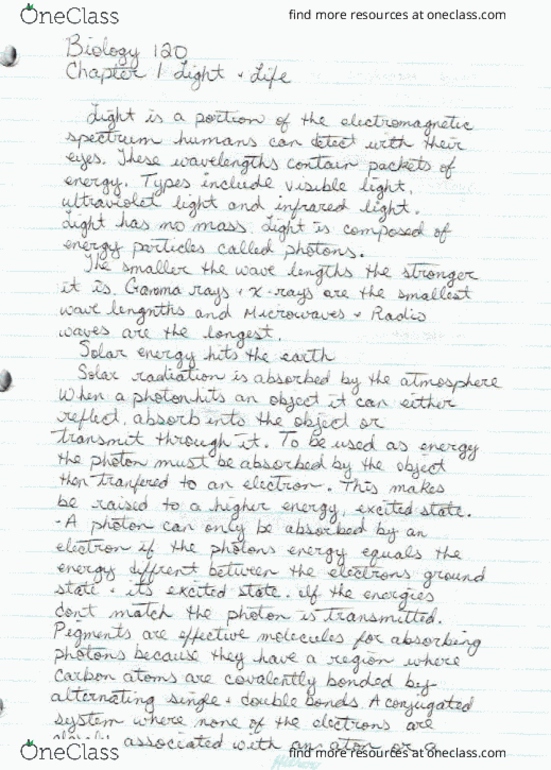 OneClass
find more resources at oneclass.com
Biology 120
Chapter 1 Light + Life
Light is a portion of the electromagnetic
spectrum humans can detect with their
eyes. These wavelengths contain packets of
energy. Types include visible light,
ultraviolet light and infrared light.
Light has no mass. Light is composed of
energy particles called photons.
The smaller the wave lengths the stronger
it is. Gamma rays + X-rays are the smallest
wave lengnths and Microwaves + Radio
waves are the longest.
Solar energy hits the earth
Solar radiation is absorbed by the atmosphere
When a photon hits an object it can either
reflect, absorb into the object or
transmit through it. To be used as energy
the photon must be absorbed by the object
then tranfered to an electron. This makes
be raised to a higher energy, excited state.
- A photon can only be absorbed by an
electron if the photons energy equals the
energy diffrent between the electrons ground
state + its excited state. if the energies
don't match the photon is transmitted.
Pigments are effective molecules for absorbing
photons because they have a region where
carbon atoms are covalently bonded by
alternating single + double bonds. A conjugated
system where none of the electrons are
associated with an atom or a
OneClass
find more resources at oneclass.com